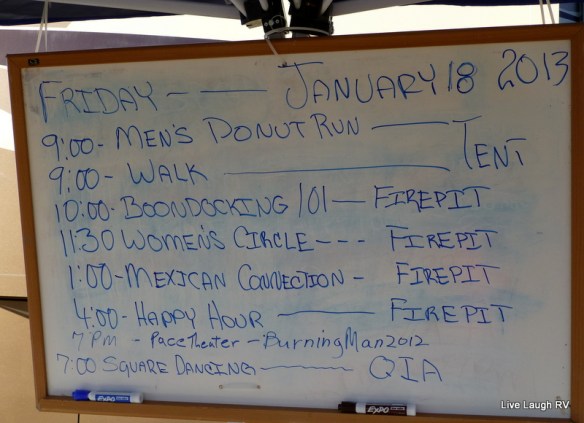 FRIDAY -- — JANUARY 18 2013
9:00- MEN'S DONUT RUN —
9:00- WALK — TENT
10:00- BOONDOCKING 101 — FIREPIT
11:30 WOMEN'S CIRCLE --- FIREPIT
1:00- MEXICAN CONNECTION - FIREPIT
4:00- HAPPY HOUR — FIREPIT
7 PM - Pace Theater - Burning Man 2012
7:00 SQUARE DANCING — QIA
EXPO
EXPO
Live Laugh RV